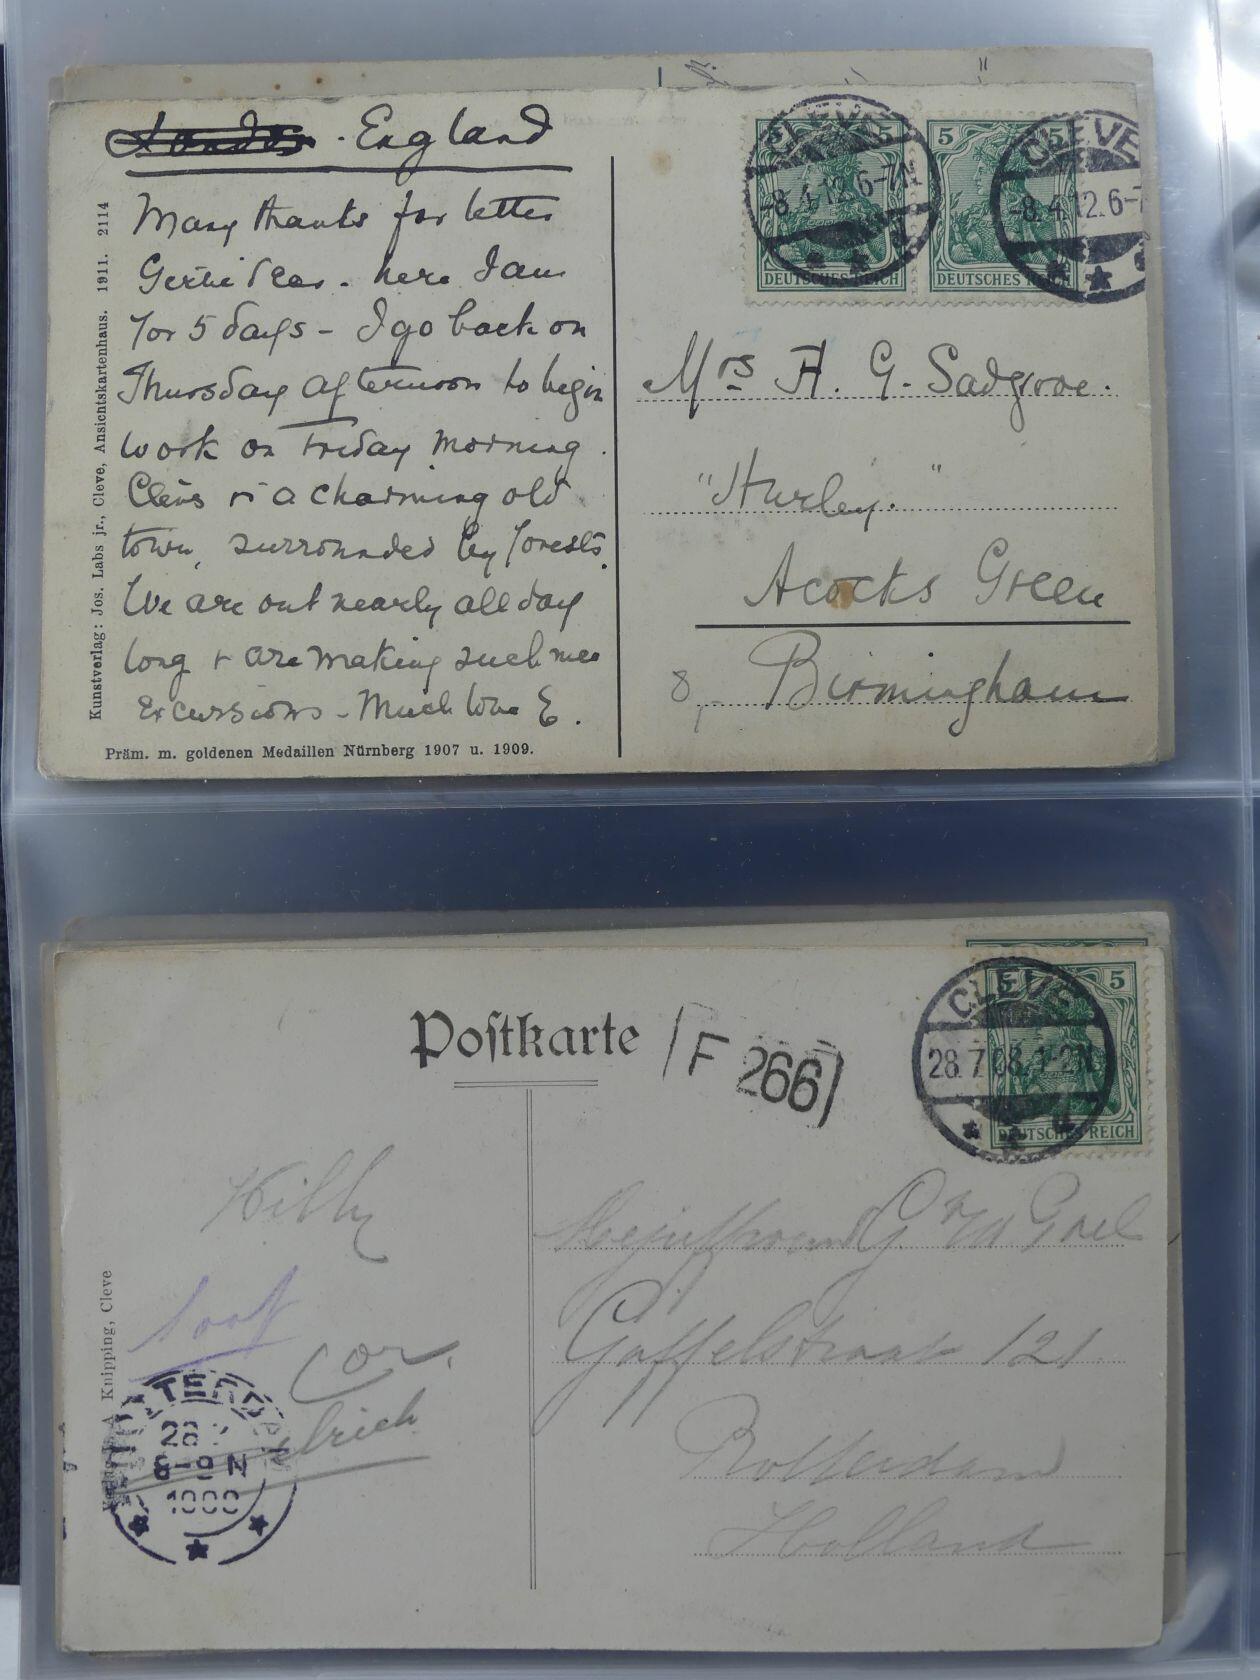 London - England
Many thanks for letter
Gertie dear - here I am
for 5 days - I go back on
Thursday afternoon to begin
work on Friday morning.
Cleve is a charming old
town, surrounded by forests.
We are out nearly all day
long + are making such nice
excursions - Much love E.
Kunstverlag: Jos. Labs jr., Cleve, Ansichtskartenhaus. 1911. 2114
Präm. m. goldenen Medaillen Nürnberg 1907 u. 1909.
CLEVE
-8.4.12.6-7N
CLEVE
-8.4.12.6-7
5 5
DEUTSCHES REICH
5 5
DEUTSCHES REICH
Mrs H. G. Sadgrove.
"Hurley."
Acocks Green
8,- Birmingham
Poſtkarte
F 266
CLEVE
28.7.08.1-2N
5 5
DEUTSCHES REICH
Willy
Cor.
Verlag A Knipping, Cleve
ROTTERDAM
28
8-9N
Mejuffrouw G.
Gaffelstraat 121
Rotterdam
Holland